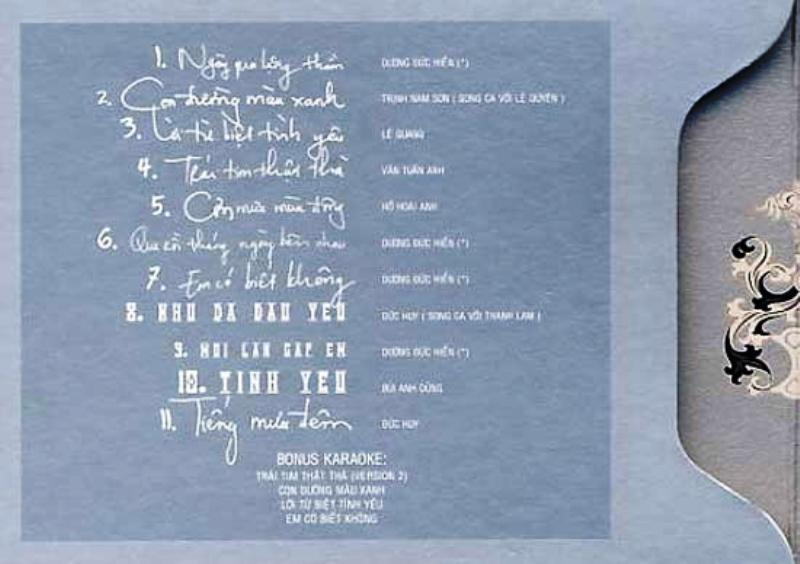 1. Ngày qua bỗng thấm DƯƠNG ĐỨC HIỂN (*)
2. Con đường màu xanh TRỊNH NAM SƠN ( SONG CA VỚI LỆ QUYÊN )
3. Lời từ biệt tình yêu LÊ QUANG
4. Trái tim thật thà VĂN TUẤN ANH
5. Cơn mưa mùa đông HỒ HOÀI ANH
6. Qua rồi tháng ngày bên nhau DƯƠNG ĐỨC HIỂN (*)
7. Em có biết không DƯƠNG ĐỨC HIỂN (*)
8. NHU DA DAU YEU ĐỨC HUY ( SONG CA VỚI THANH LAM )
9. MOI LAN GAP EM DƯƠNG ĐỨC HIỂN (*)
10. TINH YEU BÙI ANH DŨNG
11. Tiếng mưa đêm ĐỨC HUY
BONUS KARAOKE:
TRÁI TIM THẬT THÀ (VERSION 2)
CON ĐƯỜNG MÀU XANH
LỜI TỪ BIỆT TÌNH YÊU
EM CÓ BIẾT KHÔNG